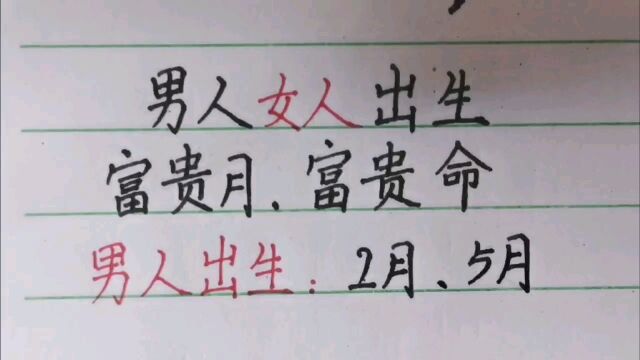 男人女人出生
富贵月、富贵命
男人出生：2月、5月